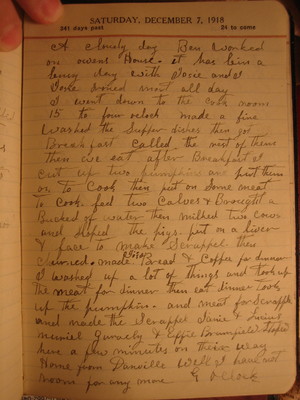 SATURDAY, DECEMBER 7, 1918
341 days past 24 to come
A cloudy day Ben worked
on owens House. it has bin a
busy day with Josie and I
Josie Ironed most all day
I went down to the Cook room
15 to four oclock made a fire
Washed the Supper dishes then got
Breakfast called the rest of them
then we eat after Breakfast I
cut up two pumpkins and put them
on To Cook then put on Some meat
To Cook. fed two Calves & Brought a
Bucked of water then milked two cows
and Sloped the pigs. put on a liver
& face to make Scrappel then
Churned. made Corn Bread & Coffee for dinner
I washed up a lot of things and took up
the meat for dinner then eat dinner took
up the pumpkin. and meat for Scrapple
and made the Scrappel Janie &
& Effie Stoped
here a few minutes on their way
Home from Danville Well I have not
room for any more